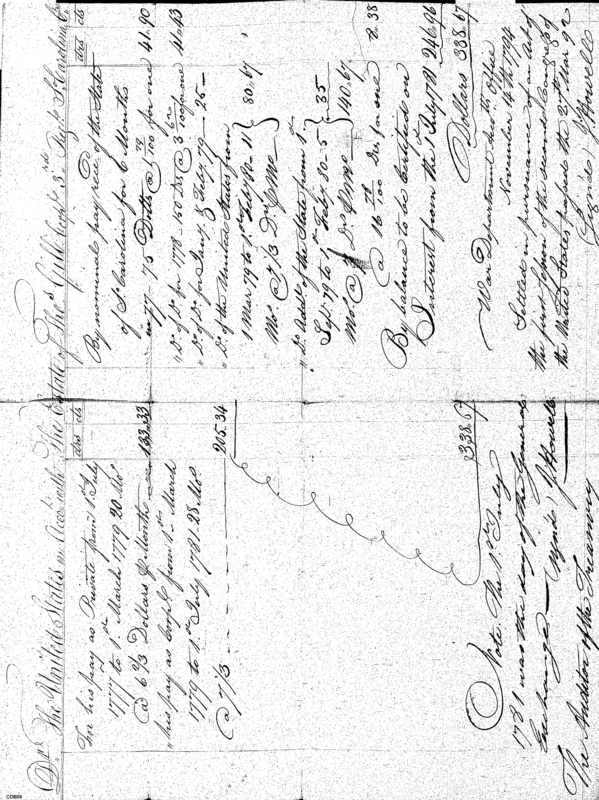 Drs. The United States in Acco.t with The Estate of
Gill Corpl. 3rd Regt. So. Carolina
drs cts
For his pay as Private from 1st July
1777 to 1st March 1779 20 Mos.
@ 6 2/3 Dollars P Month 133.33
"his pay as Corpl. from 1st March
1779 to 1st July 1781. 28 Mos.
@ 7/3 205.34
338.67
Note. The 1st July
1781 was the day of the General
Exchange
Signed, J Howell
The Auditor of the Treasury
drs cts
By nominal pay recd. of the State
of So. Carolina for 6 Months
in 77 - 75 Dolls @ for one 41.90
"Do. of Do. for 1778. 150 Drs @ for one
"Do. of Do. for Jany. & Feby. 79 25
"Do. of the United States from
1 Mar. 79 to 1st Feby 80 - 11
Mos. @ 7/3 Drs. P Mo. 80.67
"Do. Addl. of the State from 1st
Sept. 79 to 1st Feby. 80 - 5 35
Mos. @ 7 Drs P Mo. 140.67
@ 16 78/100 Drs. for one 8.38
By balance to be Certified on
Interest from the 1st July 1781 246.96
Dollars 338.67
War Department Accts. Office
November 14th 1794
Settled in pursuance of an Act of
the first Session of the second Congress of
the United States passed the 27th Mar. 92
Signed, J Howell
CD869